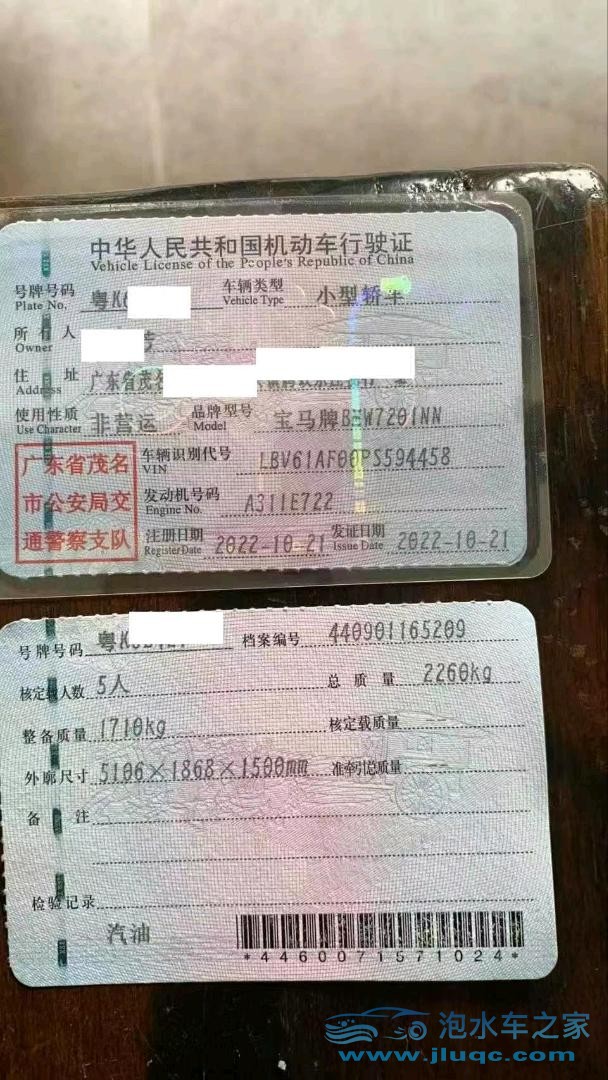 中华人民共和国机动车行驶证
Vehicle License of the People's Republic of China
号牌号码 粤K 车辆类型 小型轿车
Plate No. Vehicle Type
所有人
Owner
住址 广东省茂名
Address
使用性质 非营运 品牌型号 宝马牌BMW7201NN
Use Character Model
广东省茂名
市公安局交
通警察支队
车辆识别代号 LBV61AF00PS594458
VIN
发动机号码 A311E722
Engine No.
注册日期 2022-10-21 发证日期 2022-10-21
Register Date Issue Date
号牌号码 粤K 档案编号 440901165209
核定载人数 5人 总质量 2260kg
整备质量 1710kg 核定载质量
外廓尺寸 5106×1868×1500mm 准牵引总质量
备注
检验记录
汽油
*4460071571024*
泡水车之家
www.jluqc.com